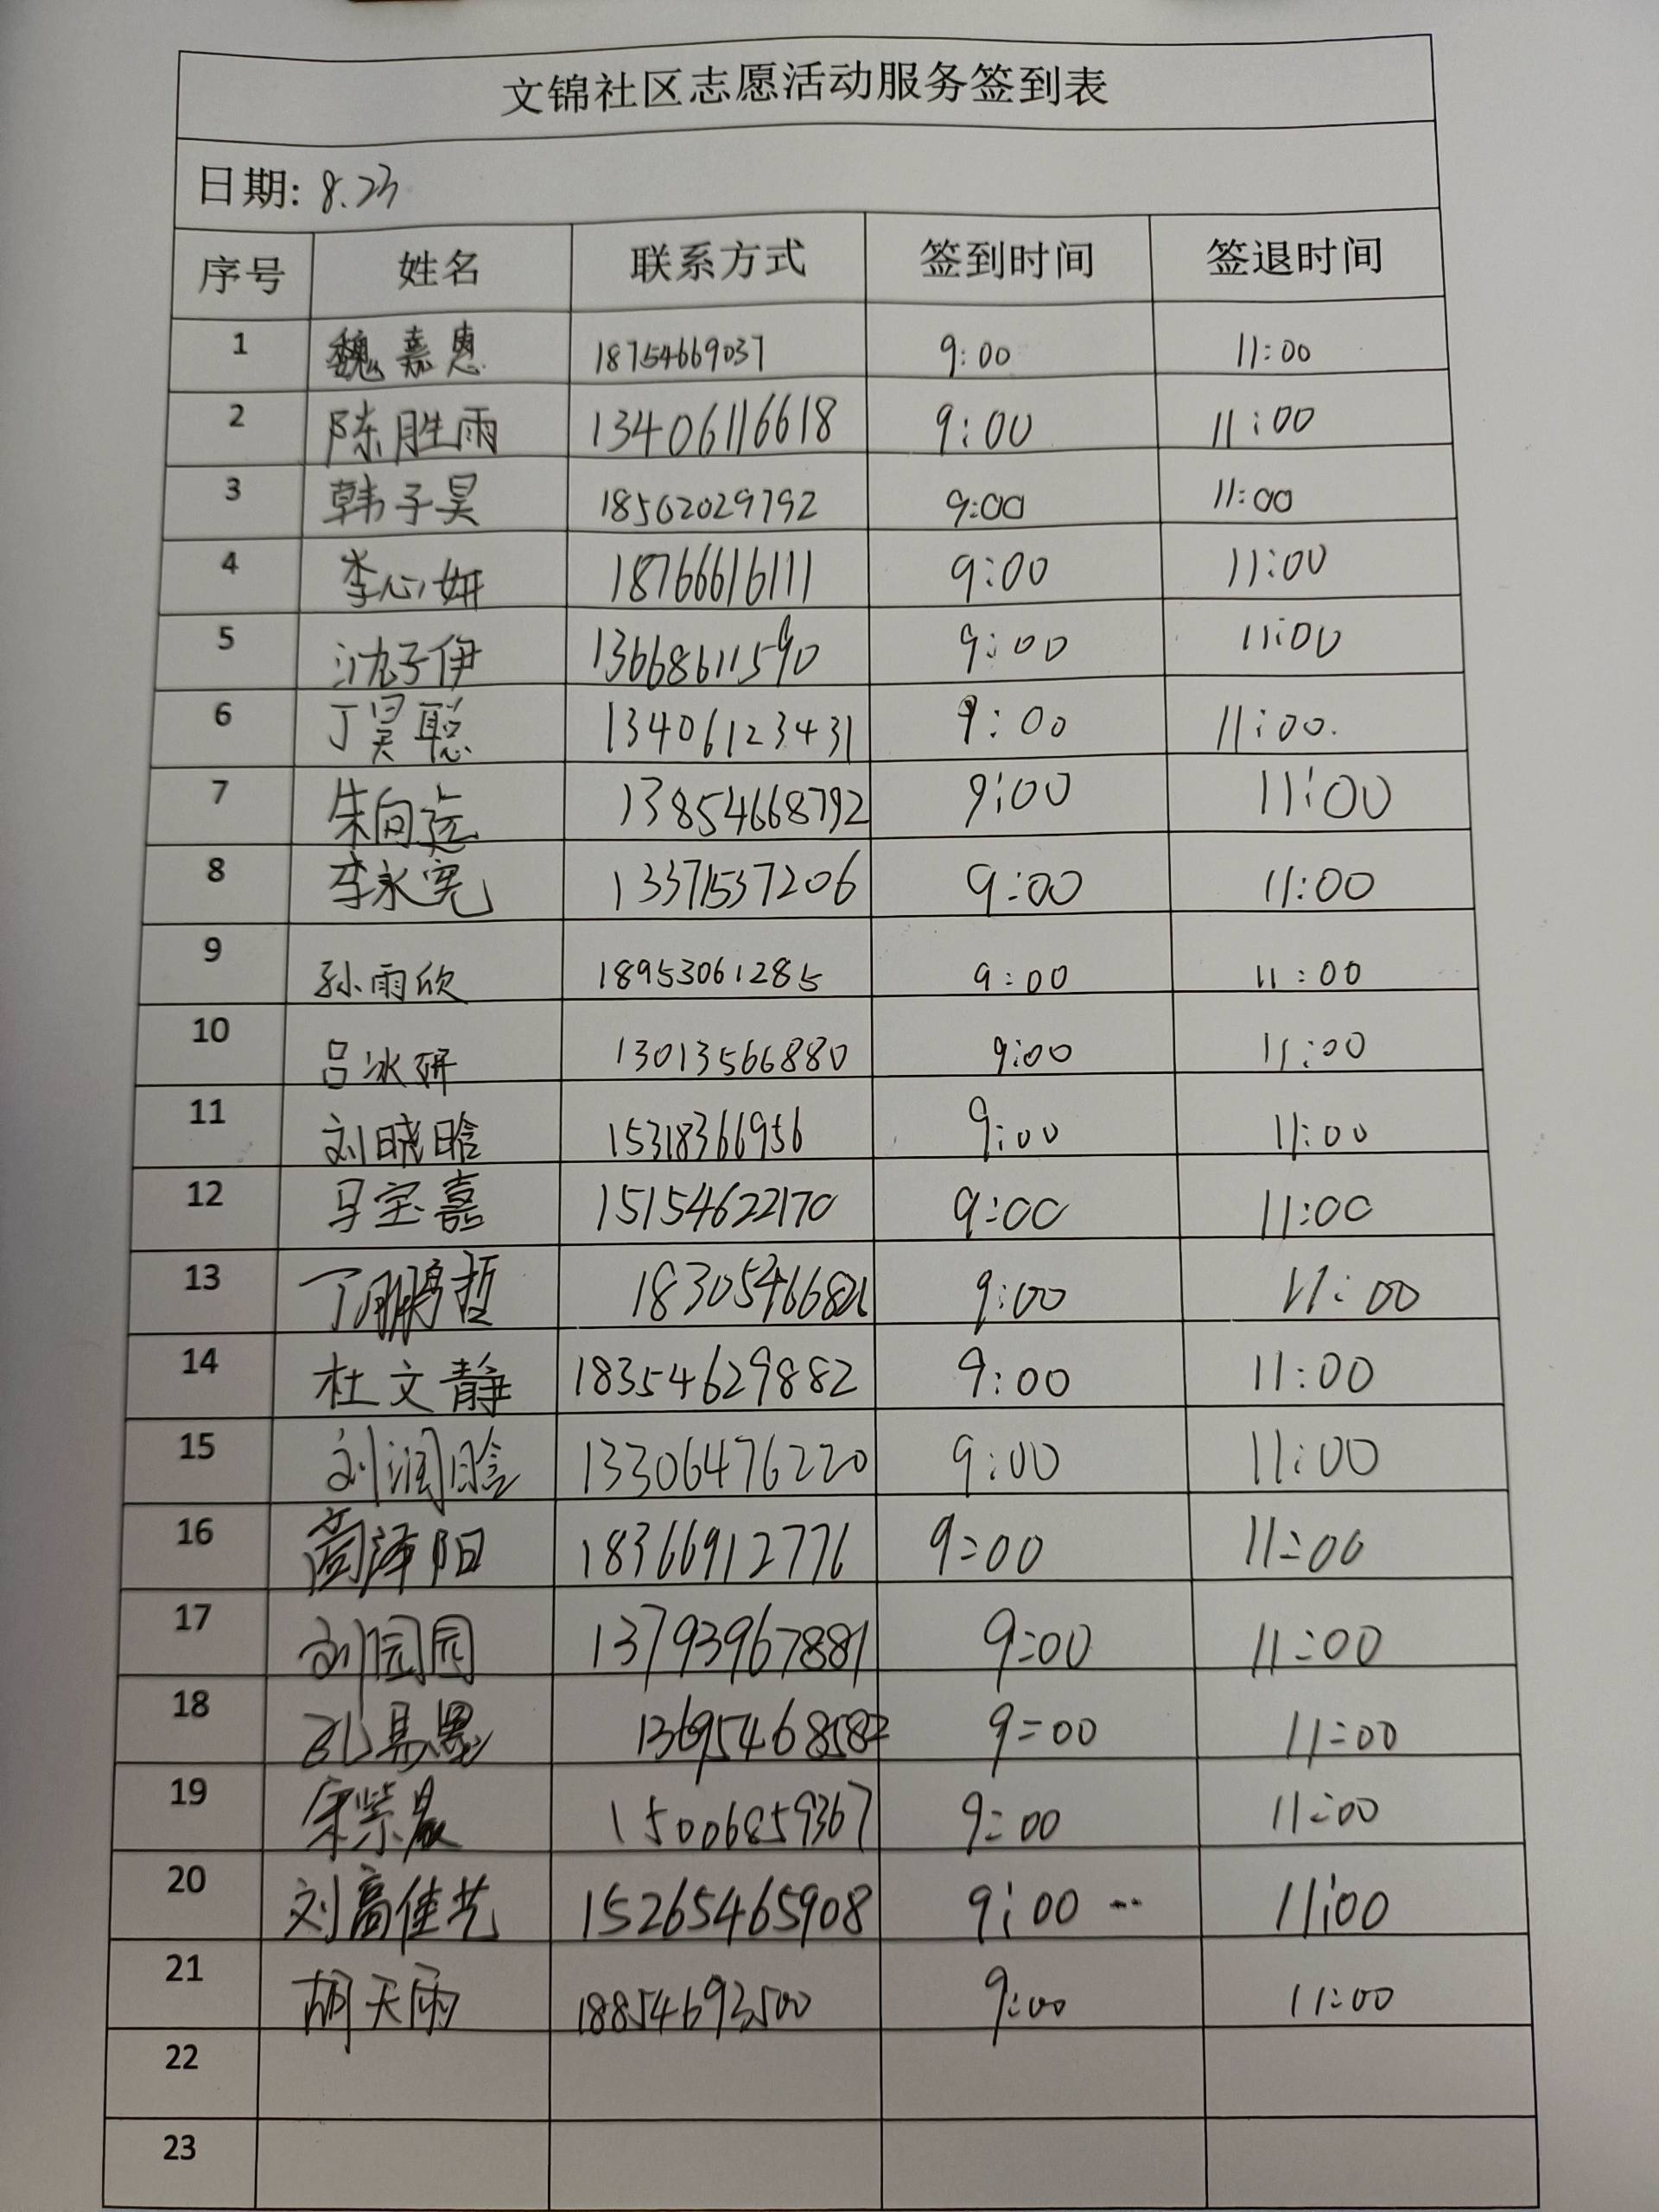 文锦社区志愿活动服务签到表
日期: 8.23
序号 姓名 联系方式 签到时间 签退时间
1 魏嘉惠 18754669037 9:00 11:00
2 陈胜雨 13406116618 9:00 11:00
3 韩子昊 18562029792 9:00 11:00
4 李心妍 18766616111 9:00 11:00
5 沈子伊 13668611590 9:00 11:00
6 丁昊聪 13406123431 9:00 11:00.
7 朱向远 13854668792 9:00 11:00
8 李永宪 13371537206 9:00 11:00
9 孙雨欣 18953061285 9:00 11:00
10 吕冰妍 13013566880 9:00 11:00
11 刘晓晗 15318366956 9:00 11:00
12 马宝嘉 15154622170 9:00 11:00
13 丁鹏哲 9:00 11:00
14 杜文静 18354629882 9:00 11:00
15 刘润晗 13306476220 9:00 11:00
16 18366912776 9:00 11:00
17 刘园园 13793967881 9:00 11:00
18 13695468582 9:00 11:00
19 宋紫晨 15006859367 9:00 11:00
20 刘高佳艺 15265465908 9:00 11:00
21 胡天雨 18854693500 9:00 11:00
22
23